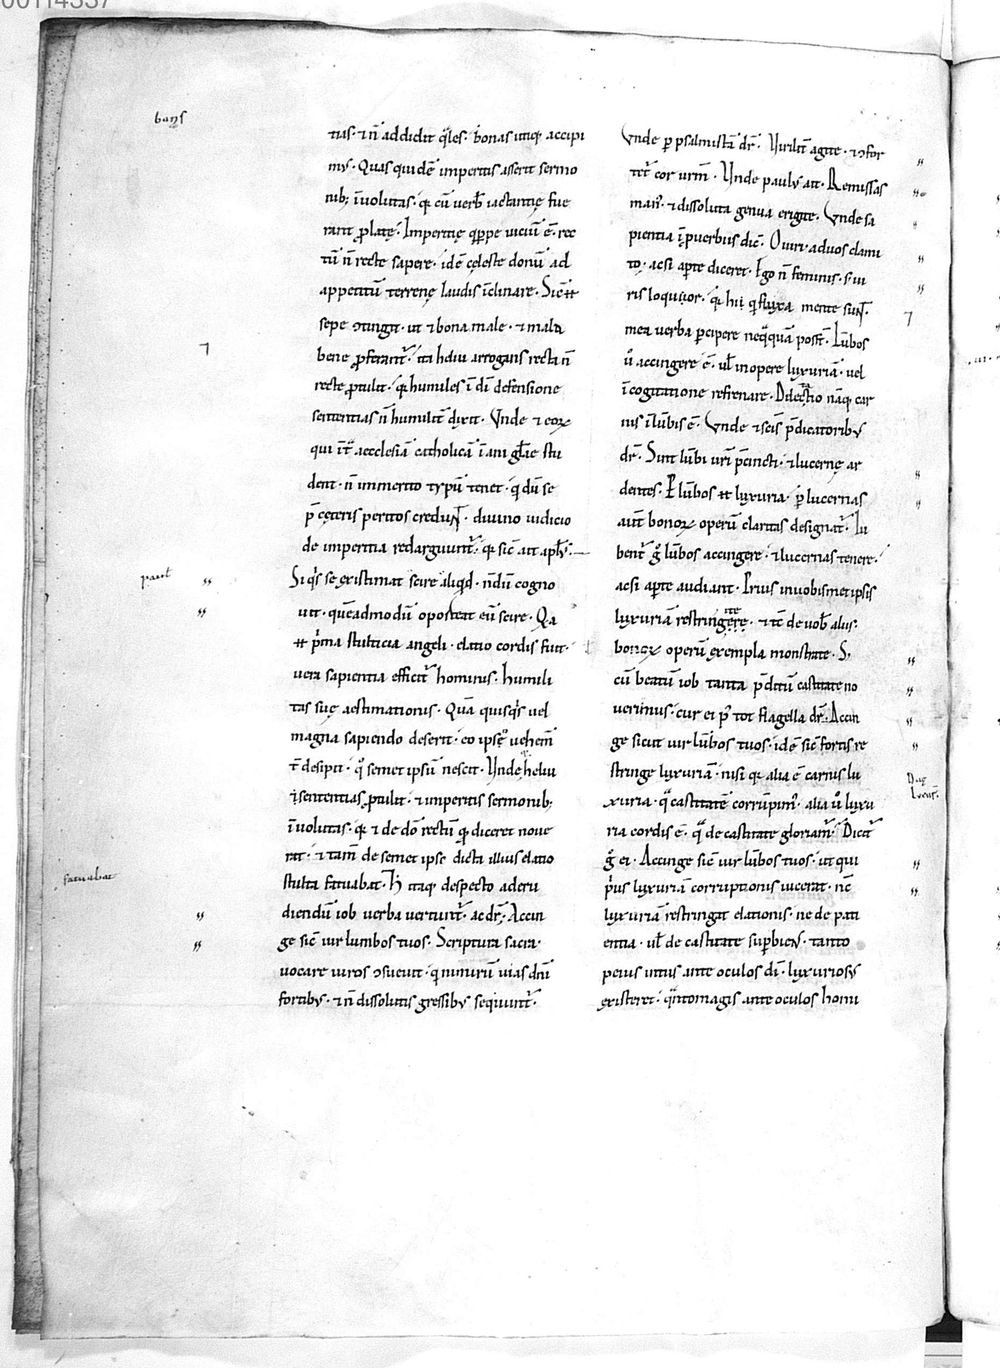 00114337
bonis
tias · ⁊ n̄ addidit q̄les · bonas utiq; accipi
mꝰ · Quas quidē imperitis asserit sermo
nib; īuolutas · q̄ cū uerbˀ iactantię fue
rant ꝓlatę · Imperitię q̄ppe uiciū ē · rec
tū n̄ recte sapere · idē cęleste donū ad
appetitū terrenę laudis īclinare · Sic̄ ·n̄·
sepe ↄtingit · ut ⁊ bona male · ⁊ mala
bene ꝓferant̄ · ita heliu arrogans recta n̄
recte ꝓtulit · q̄ humiles ī dī defensione
sententias n̄ humilit̄ dixit · Vnde ⁊ eoꝝ
qui īt̄ aecclesiā catholicā īani gl̄ie stu
dent · n̄ immerito typū tenet · q̄ dū se
p̄ cęteris peritos credunt · diuino iudicio
de imperitia redarguunt̄ · q̄ sic̄ ait apl̄s ·
Si q̄s se existimat scire aliq̄d · n̄dū cogno
uit · quēadmodū oporteat eū scire · Qa
·n̄· p̄ma stulticia angeli · elatio cordis fuit ·
uera sapientia efficit̄ hominis · humili
tas suę aestimationis · Quā quisq̄s uel
magna sapiendo deserit · eo ipso q̊ uehem̄
t̄ desipit · q̊ semet ipsū nescit · Vnde heliu
⁊ sententias ꝓtulit · ⁊ imperitis sermonib;
īuolutas · q̄ ⁊ de dō rectū qd̄ diceret noue
rat · ⁊ tam̄ de semet ipse dicta illius elatio
stulta fatuabat · H̄ itaq; despecto aderu
diendū iob uerba uertunt̄ · ac dr̄ · Accin
ge sic̄ uir lumbos tuos · Scriptura sacra ·
uocare uiros ↄsueuit · q̄ nimirū uias dn̄i
fortibꝰ · ⁊ n̄ dissolutis gressibꝰ sequunt̄ ·
paul̄
fatuabat
Vnde ꝑ psalmistā dr̄ · Uirilit̄ agite · ⁊ ↄfor
tet̄ cor ur̄m · Unde paulꝰ ait · Remissas
man̄ · ⁊ dissoluta genua erigite · Vnde sa
pientia ī ꝓuerbiis dic̄ · O uiri · ad uos clami
to · ac si aꝑte diceret · Ego n̄ feminis · s; ui
ris loquor · q̄ hii q̄ fluxa mente sunt ·
mea uerba ꝑcipere neq̄quā posst̄ · Lūbos
ů accingere ē · ul̄ in opere luxuriā · uel
ī cogitatione refrenare · Delectatio nāq; car
nis ī lūbis ē · Vnde ⁊ sc̄is p̄dicatoribꝰ
dr̄ · Sint lūbi ur̄i p̄cincti · ⁊ lucernę ar
dentes · P̲ lūbos ·n̄· luxuria · ꝑ lucernas
aut̄ bonoꝝ operū claritas designat̄ · Iu
bent̄ g̊ lūbos accingere · ⁊ lucernas tenere ·
ac si aꝑte audiant · Prius in uobismet ipsis
luxuriā restringite · ⁊ tc̄ de uob̄ aliis ·
bonoꝝ operū exempla monstrate · S;
cū beatū iob tanta p̄ditū castitate no
uerimus · cur ei pꝰ tot flagella dr̄ · Accin
ge sicut uir lūbos tuos · idē sic̄ fortis re
stringe luxuriā · nisi q̄ alia ē carnis lu
xuria · q̄ castitatē corrūpimꝰ · alia ů luxu
ria cordis ē · q̄ de castitate gloriamꝰ · Dicit̄
g̊ ei · Accinge sic̄ uir lūbos tuos · ut qui
p̄us luxuriā corruptionis uicerat · nc̄
luxuriā restringat elationis · ne de pati
entia · ul̄ de castitate suꝑbiens · tanto
peius intus ante oculos dī · luxuriosꝰ
existeret · q̄nto magis ante oculos homi